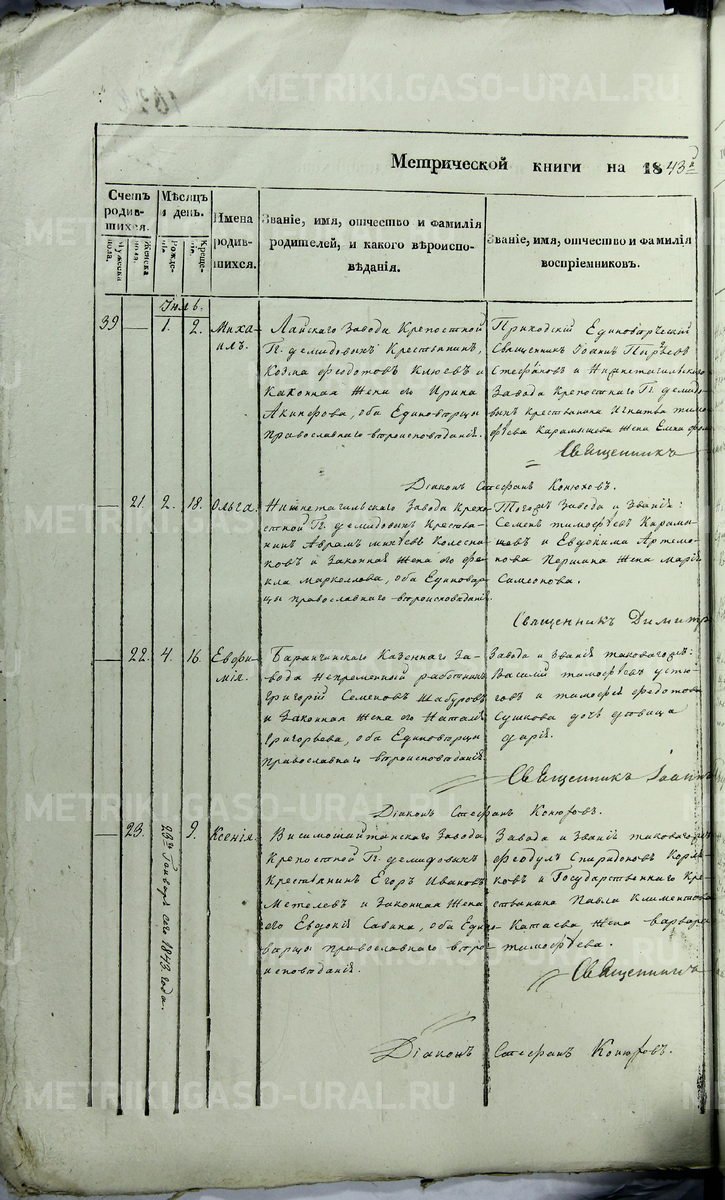 METRIKI.GASO-URAL.RU
Метрической книги на 1843й
Счетъ родив-шихся.
Мужеска пола.
Женска пола.
Мѣсяцъ и день.
Рожде-
Креще-
Имена родив-шихся.
Званіе, имя, отчество и фамилія родителей, и какого вѣроиспо-вѣданія.
Званіе, имя, отчество и фамилія воспріемниковъ.
39
1.
2.
Миха-
илъ.
Лайскаго Завода Крѣпостной
Гг. Демидовыхъ Крестьянинъ,
Козма Федотовъ Клюевъ и
Законная Жена его Ирина
Акинфова, оба Единовѣрцы
Православнаго вѣроисповѣданія.
Приходскій Единовѣрческій
Священникъ Іоаннъ Пырьевъ
Стефановъ и Нижнетагильскаго
Завода Крѣпостнаго Гг. Демидо-
выхъ крестьянина Игнатья Тимо-
фѣева Карамышева Жена Елена
Священникъ
Діаконъ Стефанъ Конюховъ.
21.
2.
18.
Ольга.
Нижнетагильскаго Завода Крѣпо-
стной Гг. Демидовыхъ Крестья-
нинъ Аврамъ Михѣевъ Колесни-
ковъ и Законная Жена его Фе-
кла Маркеллова, оба Единовѣр-
цы Православнаго вѣроисповѣданія.
Тогожъ Завода и Званія:
Семенъ Тимофѣевъ Карамы-
шовъ и Евдокима Артемо-
нова Першина Жена Марія
Симеонова.
Священникъ Димитр
22.
4.
16.
Евфи-
мія.
Баранчинскаго Казеннаго За-
вода Непремѣнный работникъ
Григорій Семеновъ Шабуровъ
и Законная Жена его Наталія
Григорьева, оба Единовѣрцы
Православнаго вѣроисповѣданія
Завода и Званія таковагожъ:
Василій Тимофѣевъ Устю-
говъ и Тимофея Федотова
Сушкова дочь дѣвица
Дарія.
Священникъ Іоаннъ
Діаконъ Стефанъ Конюховъ.
23.
23го Генваря сего 1843 года.
9.
Ксенія.
Висимошайтанскаго Завода
Крѣпостной Гг. Демидовыхъ
Крестьянинъ Егоръ Ивановъ
Метелевъ и Законная Жена
его Евдокія Савина, оба Едино-
вѣрцы Православнаго вѣро-
исповѣданія.
Завода и Званія таковагожъ
Феодулъ Спиридоновъ
и Государственнаго Кре-
стьянина Павла Климентова
Катаева, Жена Варвара
Тимофѣева.
Священникъ
Діаконъ Стефанъ Конюховъ.
METRIKI.GASO-URAL.RU